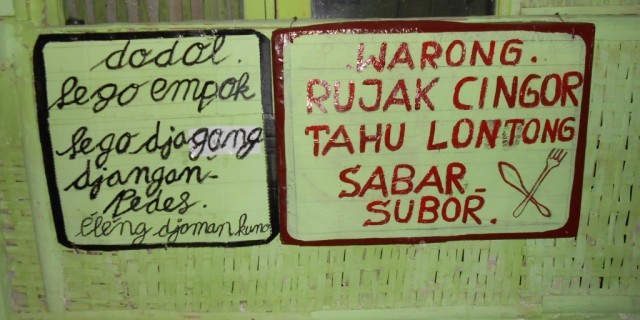 dodol.
Sego empok
Sego djagong
djangan-
Pedes.
Eleng djaman kuno
WARONG.
RUJAK CINGOR
TAHU LONTONG
SABAR_
SUBOR.